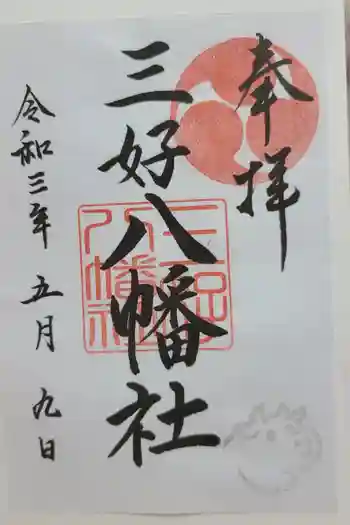 奉拝
三好八幡社
令和三年 五月 九日
三好八幡社